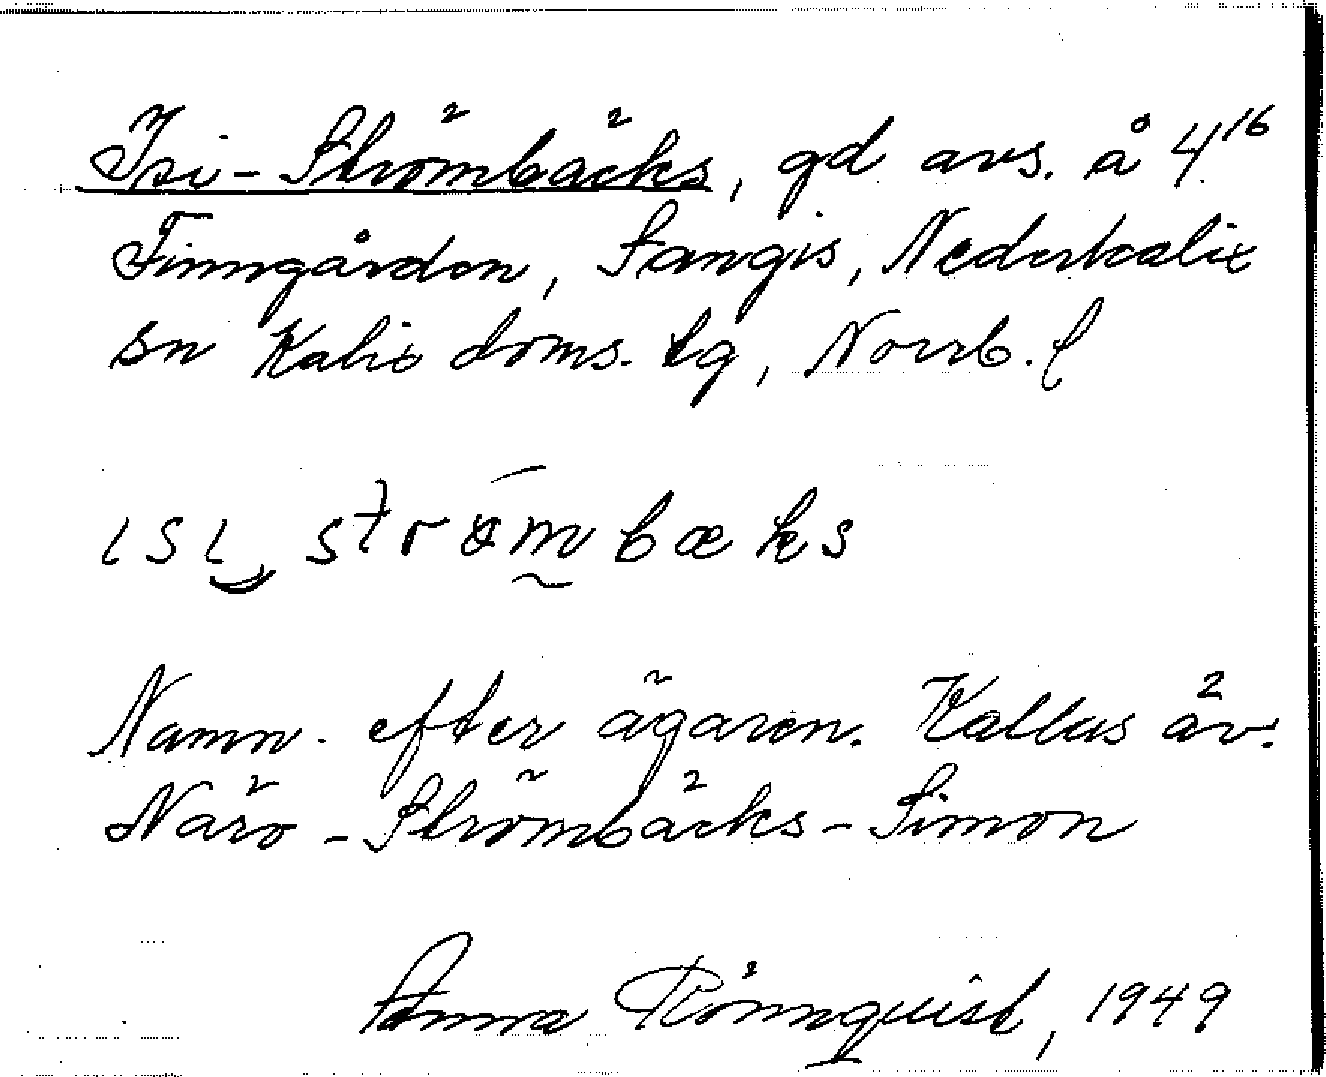 Isi-Strömbäcks, gd avs. å 4¹⁶
Finngården, Sangis, Nederkalix
sn Kalix doms. lg, Norrb. l
ısı strömbæks
Namn efter ägaren. Kallas äv.
Närö-Strömbäcks-Simon
Anna Rönnquist, 1949